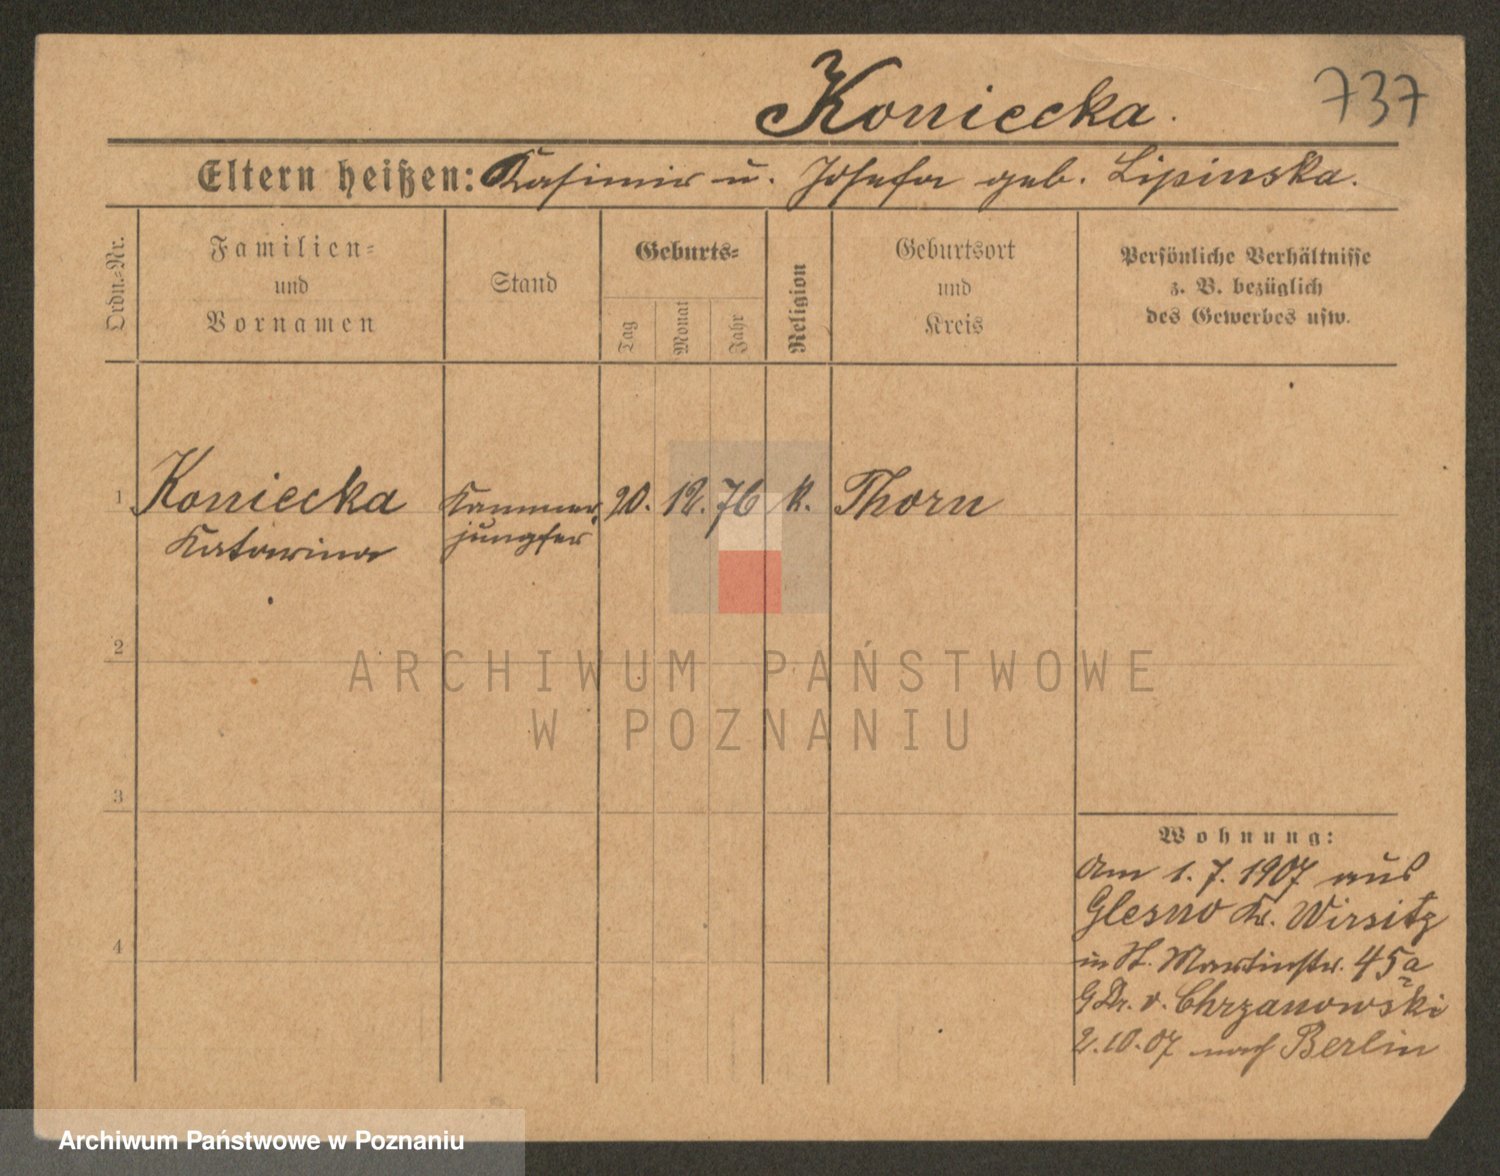 Koniecka.
737
Eltern heißen: Kasimir u. Josefa geb. Lipinska.
Ordn.-Nr.
Familien- und Vornamen
Stand
Geburts-
Tag
Monat
Jahr
Religion
Geburtsort und Kreis
Persönliche Verhältnisse
z. B. bezüglich
des Gewerbes usw.
1 Koniecka Kammer, 20. 12. 76 k. Thorn
Katarina jungfer
2
ARCHIWUM PAŃSTWOWE
W POZNANIU
3
Wohnung:
Am 1. 7. 1907 aus
Glesno Kr. Wirsitz
in St. Martinstr. 45a
Dr. v. Chrzanowski
4
2.10.07 nach Berlin
Archiwum Państwowe w Poznaniu